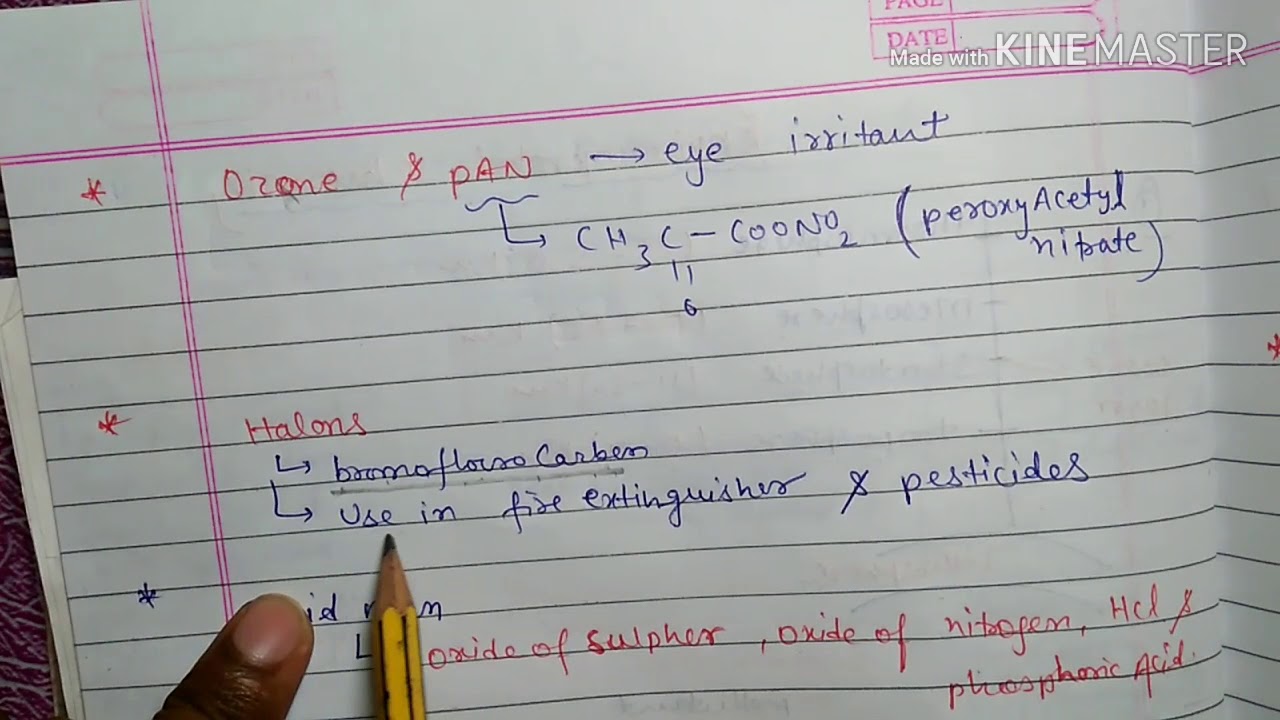 PAGE
DATE
Made with KINEMASTER
* Ozone & PAN → eye irritant
CH3C – COONO2 (peroxyAcetyl
nitrate)
||
O
* Halons
↳ bromofloroCarben
↳ Use in fire extinguisher & pesticides
*
↳ oxide of sulpher, oxide of nitrogen, Hcl &
phosphoric Acid.